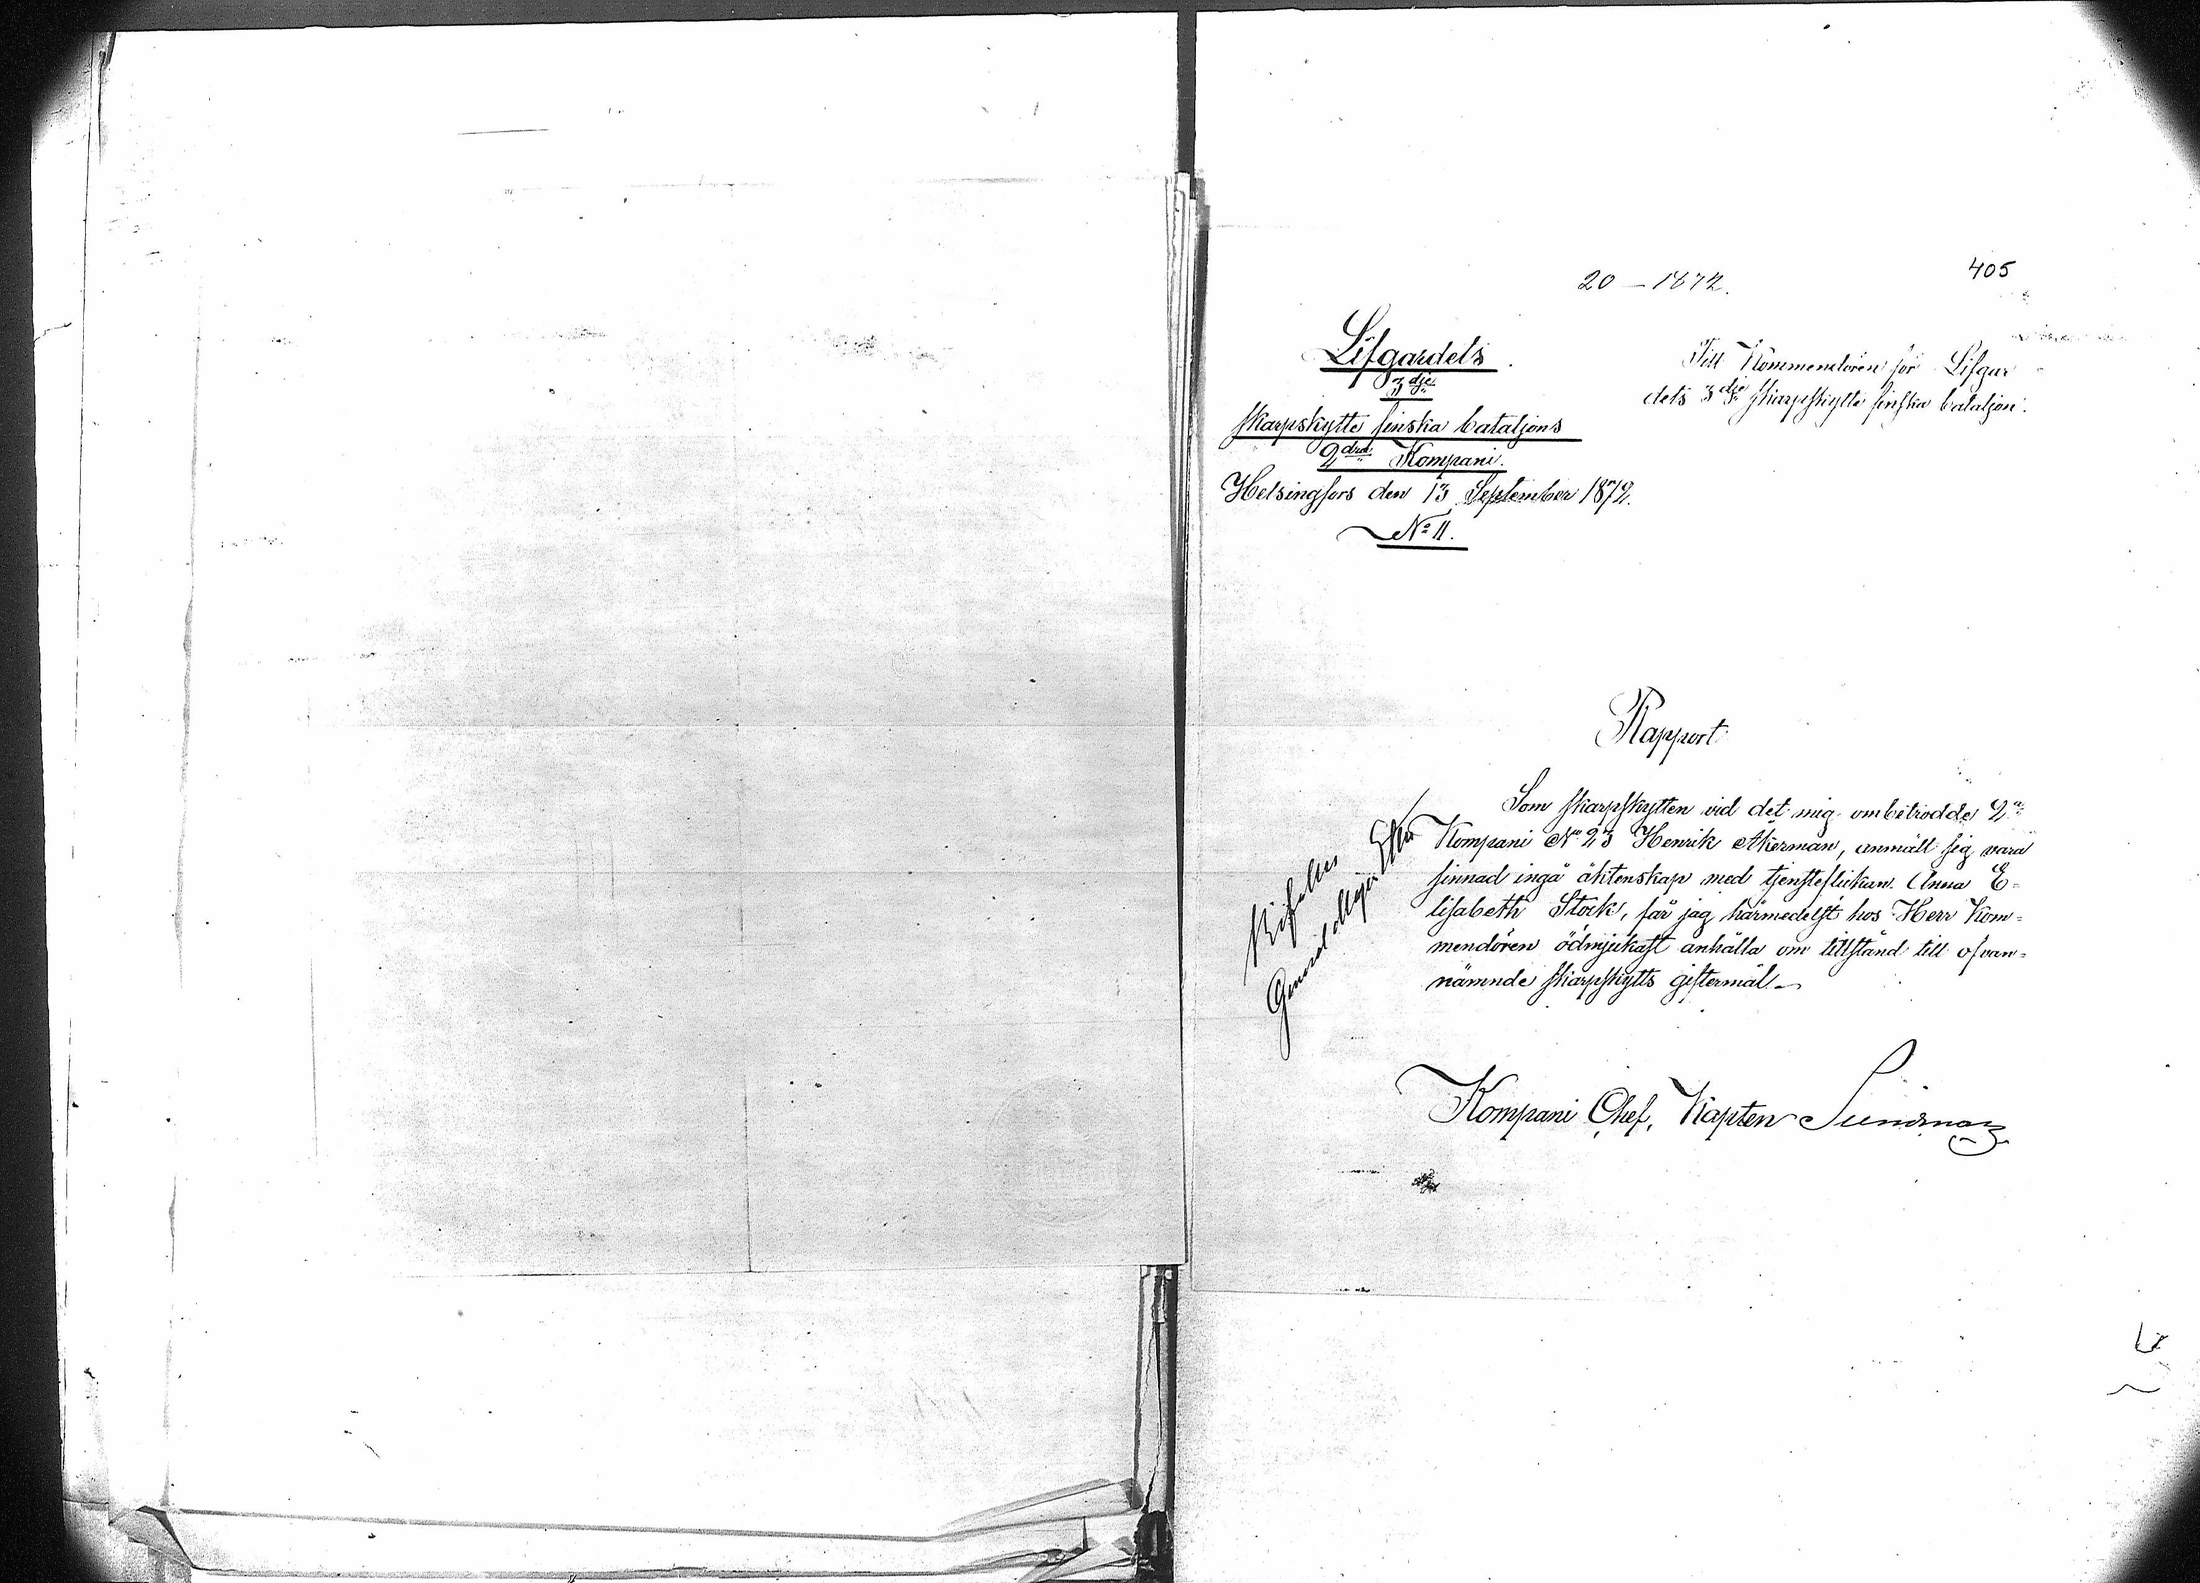 405
20 - 1872.
Lifgardets
3dje
skarpskytte finska bataljons
2dra Kompani.
Helsingfors den 13 September 1872.
No 11.
Till Kommendören för Lifgar
dets 3dje skarpskytte finska bataljon.
Rapport
Som skarpskytten vid det mig ombetrodde 2a
Kompani No 23 Henrik Åkerman, anmält sig vara
sinnad ingå äktenskap med tjensteflickan Anna E-
lisabeth Stork, får jag härmedelst hos Herr Kom-
mendören ödmjukast anhålla om tillstånd till ofvan-
nämnde skarpskytts giftermål.
Bifalles
General Major
Kompani Chef, Kapten Sundman